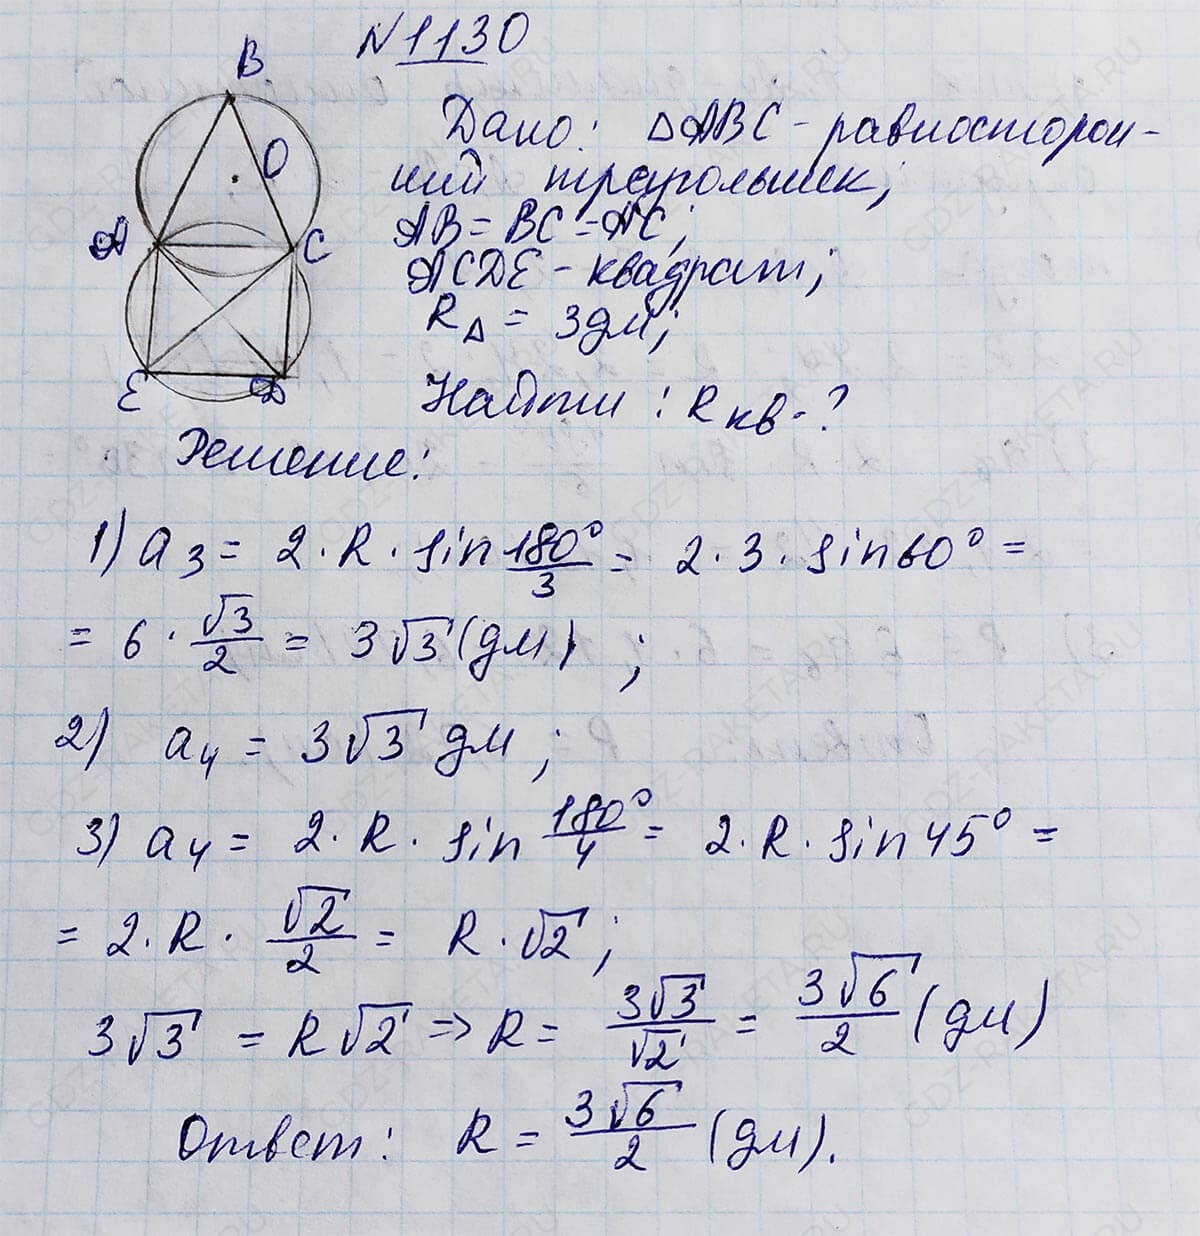 №1130
B
O
A
C
E
D
Дано: △ABC - равносторон-
ний треугольник;
AB = BC = AC;
ACDE - квадрат;
R△ = 3дм;
Найти: Rкв - ?
Решение:
1) a₃ = 2 · R · sin 180°/3 = 2 · 3 · sin 60° =
= 6 · √3/2 = 3√3 (дм);
2) a₄ = 3√3 дм;
3) a₄ = 2 · R · sin 180°/4 = 2 · R · sin 45° =
= 2 · R · √2/2 = R · √2;
3√3 = R√2 => R = 3√3/√2 = 3√6/2 (дм)
Ответ: R = 3√6/2 (дм).
GDZ-RAKETA.RU